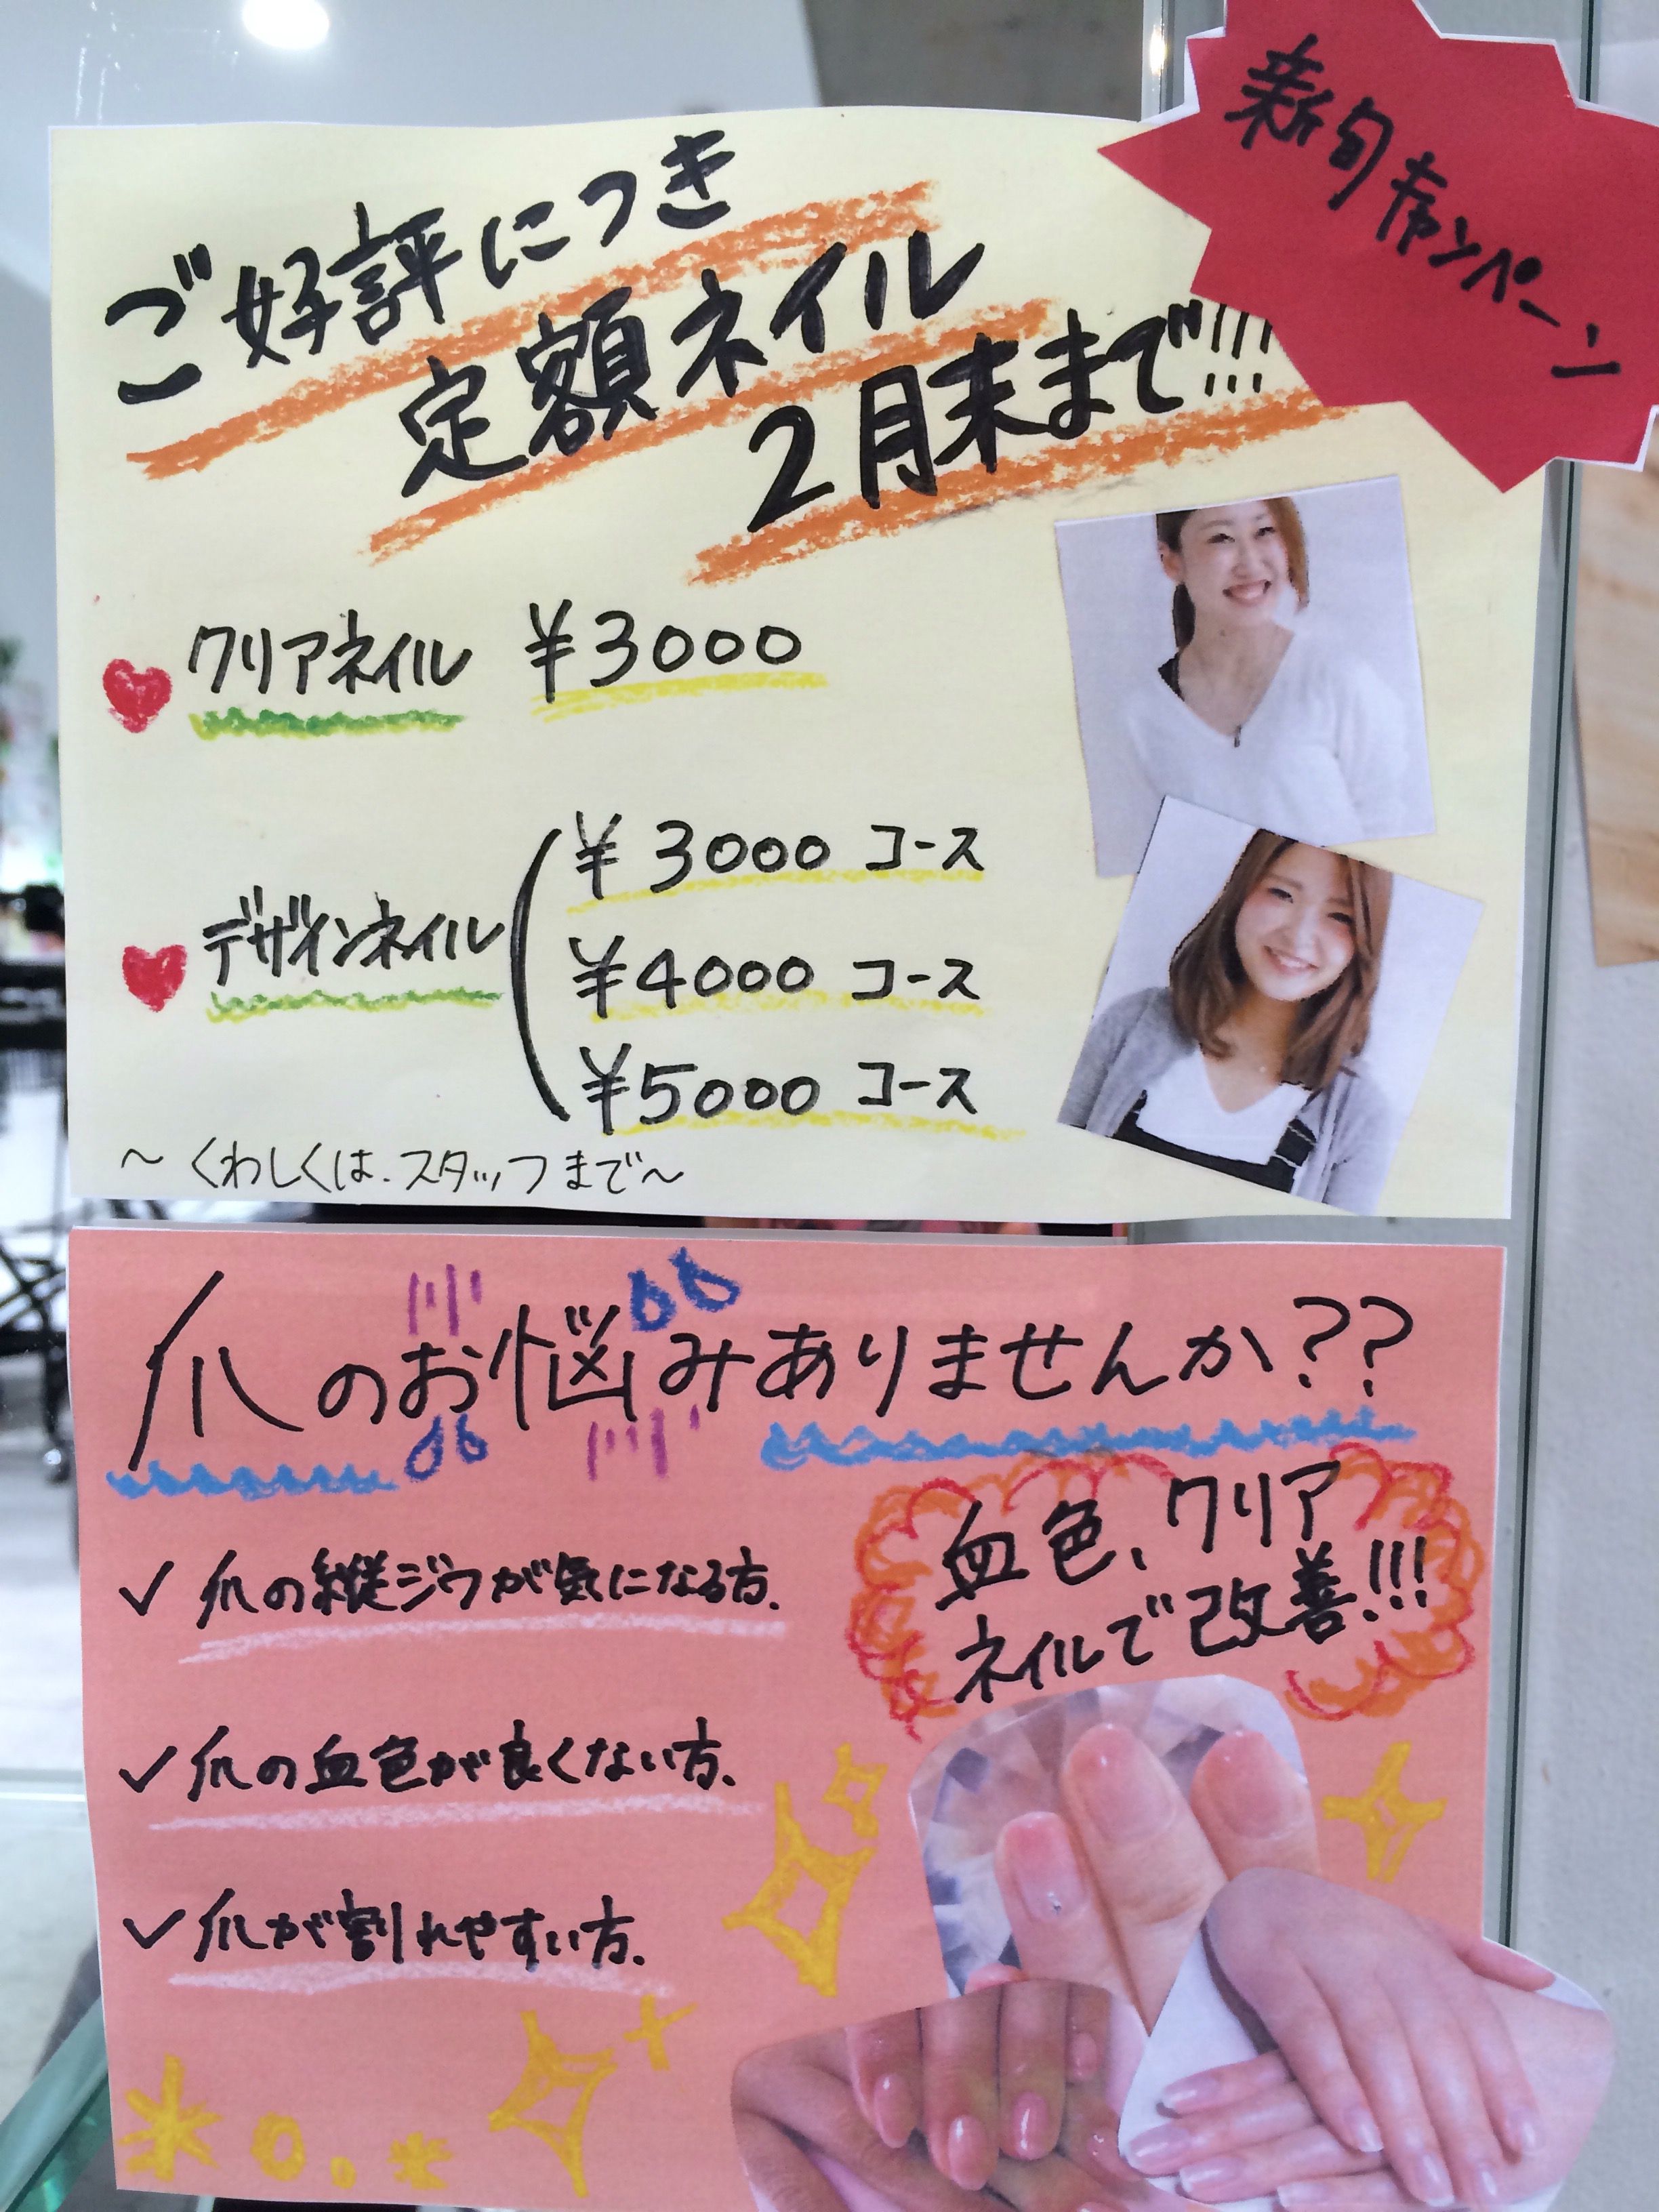 新旬キャンペーン
ご好評につき
定額ネイル
2月末まで!!!
クリアネイル ¥3000
デザインネイル
¥3000 コース
¥4000 コース
¥5000 コース
～くわしくは、スタッフまで～
爪のお悩みありませんか??
血色、クリア
ネイルで改善!!!
✓爪の縦ジワが気になる方、
✓爪の血色が良くない方、
✓爪が割れやすい方、